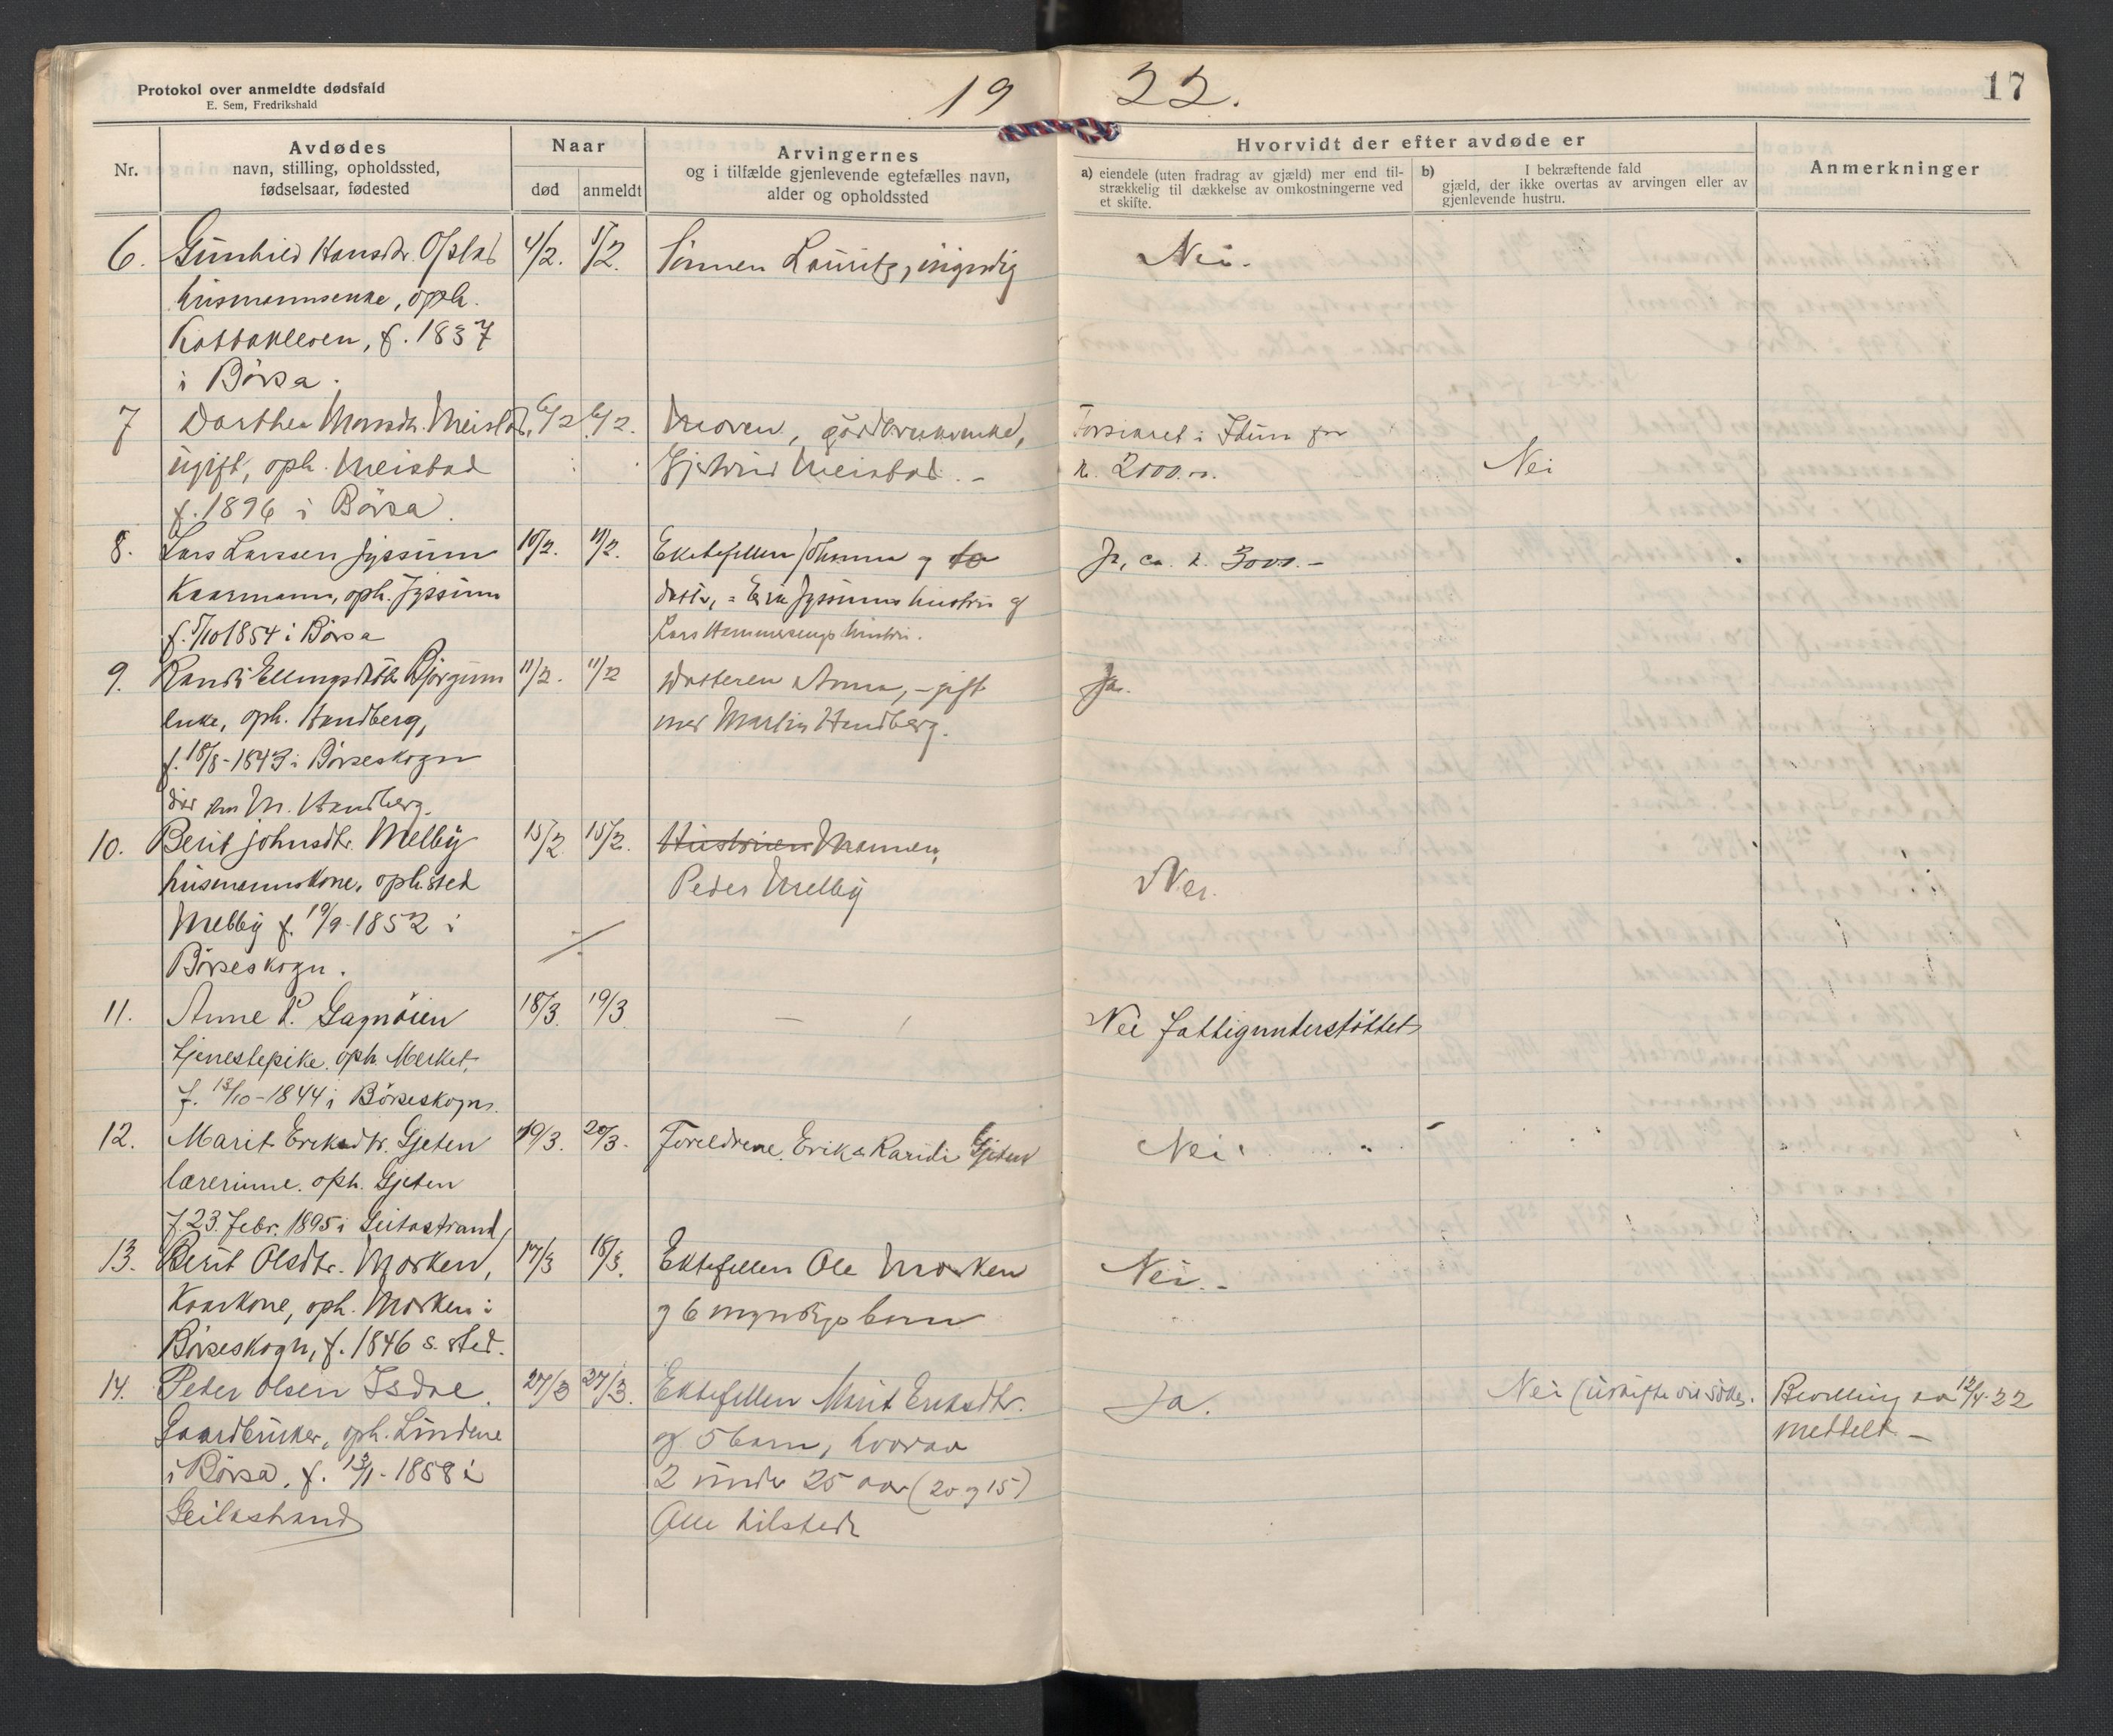 Protokol over anmeldte dødsfald
E. Sem, Fredrikshald
19 22.
17
Nr.
Avdødes
navn, stilling, opholdssted,
fødselsaar, fødested
Naar
død
anmeldt
Arvingernes
og i tilfælde gjenlevende egtefælles navn,
alder og opholdssted
Hvorvidt der efter avdøde er
a) eiendele (uten fradrag av gjæld) mer end til-
strækkelig til dækkelse av omkostningerne ved
et skifte.
b) I bekræftende fald
gjæld, der ikke overtas av arvingen eller av
gjenlevende hustru.
Anmerkninger
6. Gunhild Hansdtr. Opstad 4/2. 5/2. Sønnen Lauritz, myndig Nei.
husmannsenke, oph.
Kattakleven, f. 1837
i Börsa.
7 Dorthea Monsdtr. Meistad, 6/2 6/2. Moren, gårdbrukerenke, Forsikret i Idun for
ugift, oph. Meistad Gjertrud Meistad. - k. 2000.00. Nei
f. 1896 i Börsa.
8. Lars Larssen Jyssum 10/2. 11/2. Ektefellen Johanna og to Ja, ca. k. 3000.-
Kaarmann, oph. Jyssum døtre, = Erik Jyssums hustru og
f. 5/10 1854 i Börsa Lars Hammersengs hustru.
9. Randi Ellingsdtr. Björgum 11/2. 11/2 Datteren Anna, - gift Ja.
enke, oph. Handberg, med Martin Handberg.
f. 18/8-1843 i Börseskogn
hos M. Handberg.
10. Berit Johnsdtr. Melby 15/2 15/2. Hustruen Mannen,
husmannskone, oph.sted Peder Melby Nei.
Melby f. 19/9-1852 i
Börseskogn.
11. Anne P. Gagnåien 18/3. 19/3 Nei fattigunderstöttet
tjenestepike. oph. Merket,
f. 13/10-1844 i Börseskogn.
12. Marit Eriksdtr. Gjeten 19/3. 20/3. Foreldrene, Erik & Randi Gjeten Nei
lærerinne. oph. Gjeten
f. 23. febr. 1895 i Geitastrand
13. Berit Olsdtr. Morken, 17/3 18/3. Ektefellen Ole Morken Nei.-
Kaarkone, oph. Morken i og 6 myndige barn
Börseskogn, f. 1846 s. sted.
14. Peder Olsen Isdal 27/3 27/3. Ektefellen Marit Eriksdtr. Ja. Nei (uskifte vil sökes. Bevilling av 12/4-22
Gaardbruker, oph. Lindene og 5 barn, hvorav meddelt -
i Börsa. f. 13/1-1858 i 2 under 25 aar (20 og 15)
Geitastrand Alle tilstede